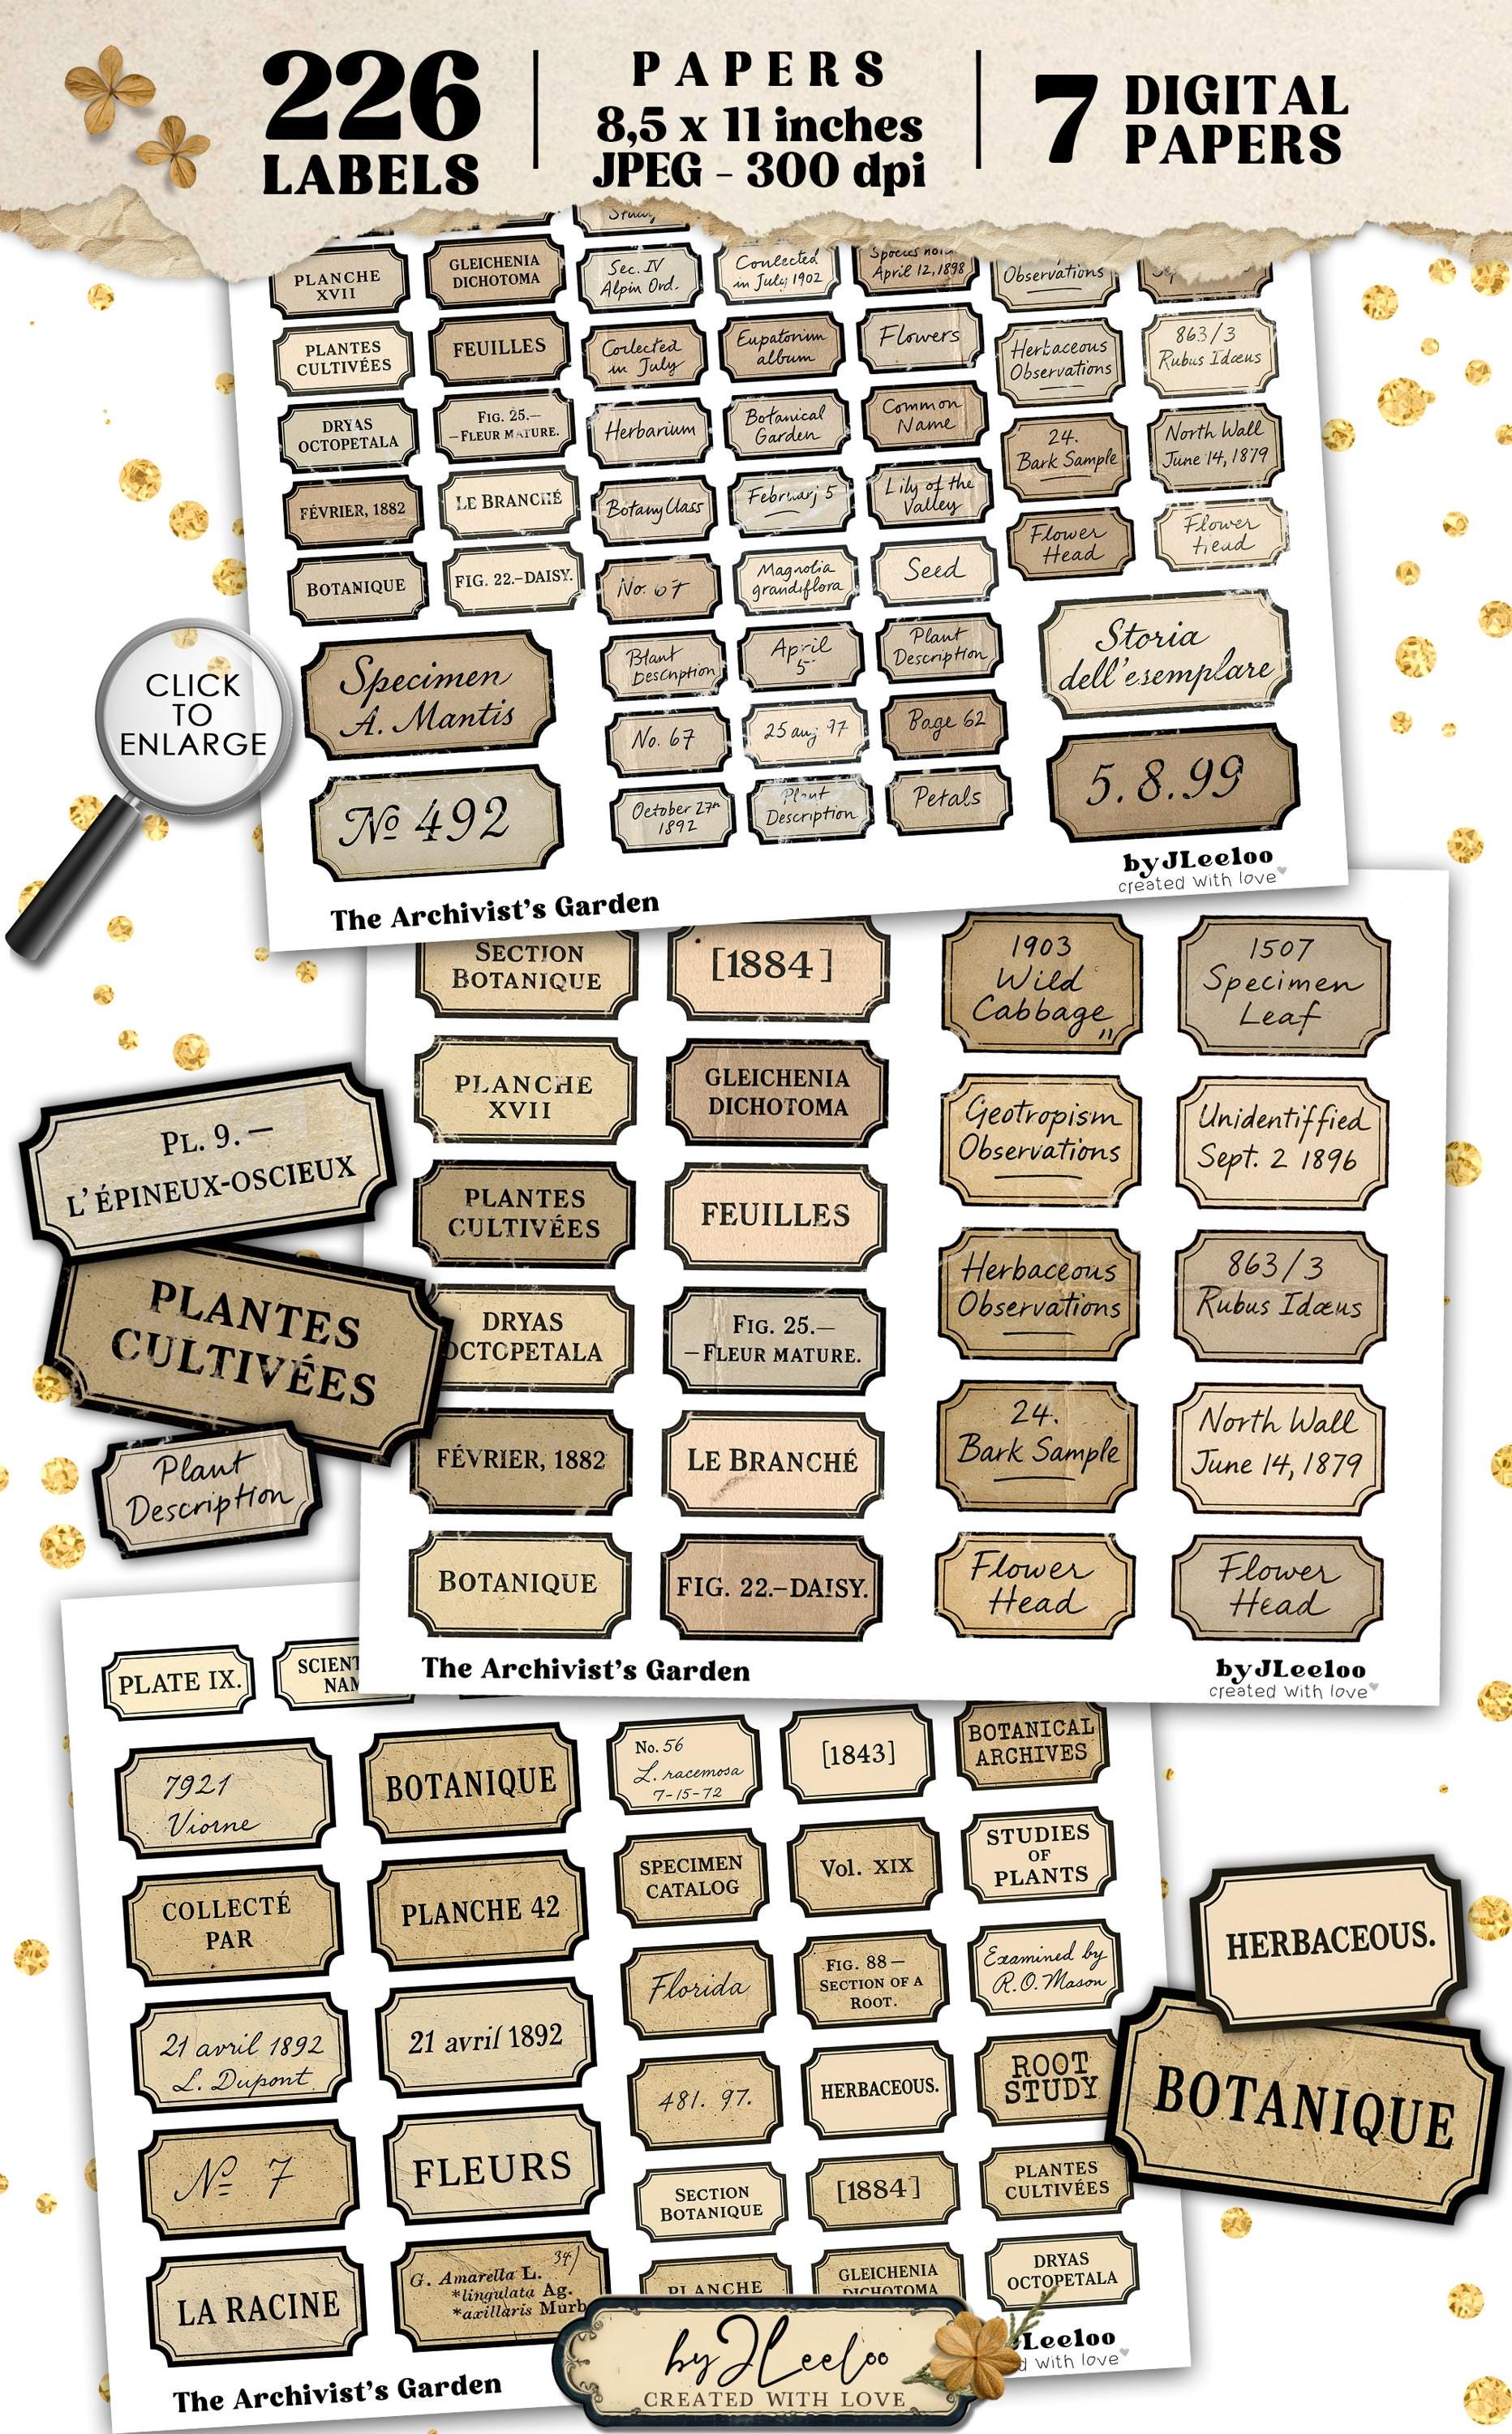 226
LABELS
PAPERS
8,5 x 11 inches
JPEG - 300 dpi
7 DIGITAL
PAPERS
CLICK
TO
ENLARGE
Study
PLANCHE
XVII
GLEICHENIA
DICHOTOMA
Sec. IV
Alpin Ord.
Conlected
in July 1902
April 12, 1898
Observations
PLANTES
CULTIVÉES
FEUILLES
Corlected
in July
Eupatorium
album
Flowers
Herbaceous
Observations
863/3
Rubus Idæus
DRYAS
OCTOPETALA
FIG. 25.—
—FLEUR MATURE.
Herbarium
Botanical
Garden
Common
Name
24.
Bark Sample
North Wall
June 14, 1879
FÉVRIER, 1882
LE BRANCHÉ
Botany Class
Februarj 5
Lily of the
Valley
Flower
Head
Flower
Head
BOTANIQUE
FIG. 22.–DAISY.
No. 67
Magnolia
grandiflora
Seed
Specimen
A. Mantis
Plant
Description
April
5
Plant
Description
Storia
dell'esemplare
No. 67
25 aug 97
Page 62
№ 492
October 27th
1892
Plant
Description
Petals
5.8.99
The Archivist's Garden
byJLeeloo
created with love
SECTION
BOTANIQUE
[1884]
1903
Wild
Cabbage"
1507
Specimen
Leaf
PLANCHE
XVII
GLEICHENIA
DICHOTOMA
Geotropism
Observations
Unidentiffied
Sept. 2 1896
PLANTES
CULTIVÉES
FEUILLES
Herbaceous
Observations
863/3
Rubus Idæus
DRYAS
OCTOPETALA
FIG. 25.—
—FLEUR MATURE.
24.
Bark Sample
North Wall
June 14, 1879
FÉVRIER, 1882
LE BRANCHÉ
Flower
Head
Flower
Head
BOTANIQUE
FIG. 22.–DAISY.
The Archivist's Garden
byJLeeloo
created with love
PL. 9. —
L'ÉPINEUX-OSCIEUX
PLANTES
CULTIVÉES
Plant
Description
PLATE IX.
SCIENT
NAM
7921
Viorne
BOTANIQUE
No. 56
L. racemosa
7-15-72
[1843]
BOTANICAL
ARCHIVES
COLLECTÉ
PAR
PLANCHE 42
SPECIMEN
CATALOG
Vol. XIX
STUDIES
OF
PLANTS
21 avril 1892
L. Dupont
21 avril 1892
Florida
FIG. 88 —
SECTION OF A
ROOT.
Examined by
R.O. Mason
№ 7
FLEURS
481. 97.
HERBACEOUS.
ROOT
STUDY
SECTION
BOTANIQUE
[1884]
PLANTES
CULTIVÉES
LA RACINE
34)
G. Amarella L.
*lingulata Ag.
*axillaris Murb
PLANCHE
GLEICHENIA
DICHOTOMA
DRYAS
OCTOPETALA
The Archivist's Garden
Leeloo
d with love
HERBACEOUS.
BOTANIQUE
byJLeeloo
CREATED WITH LOVE